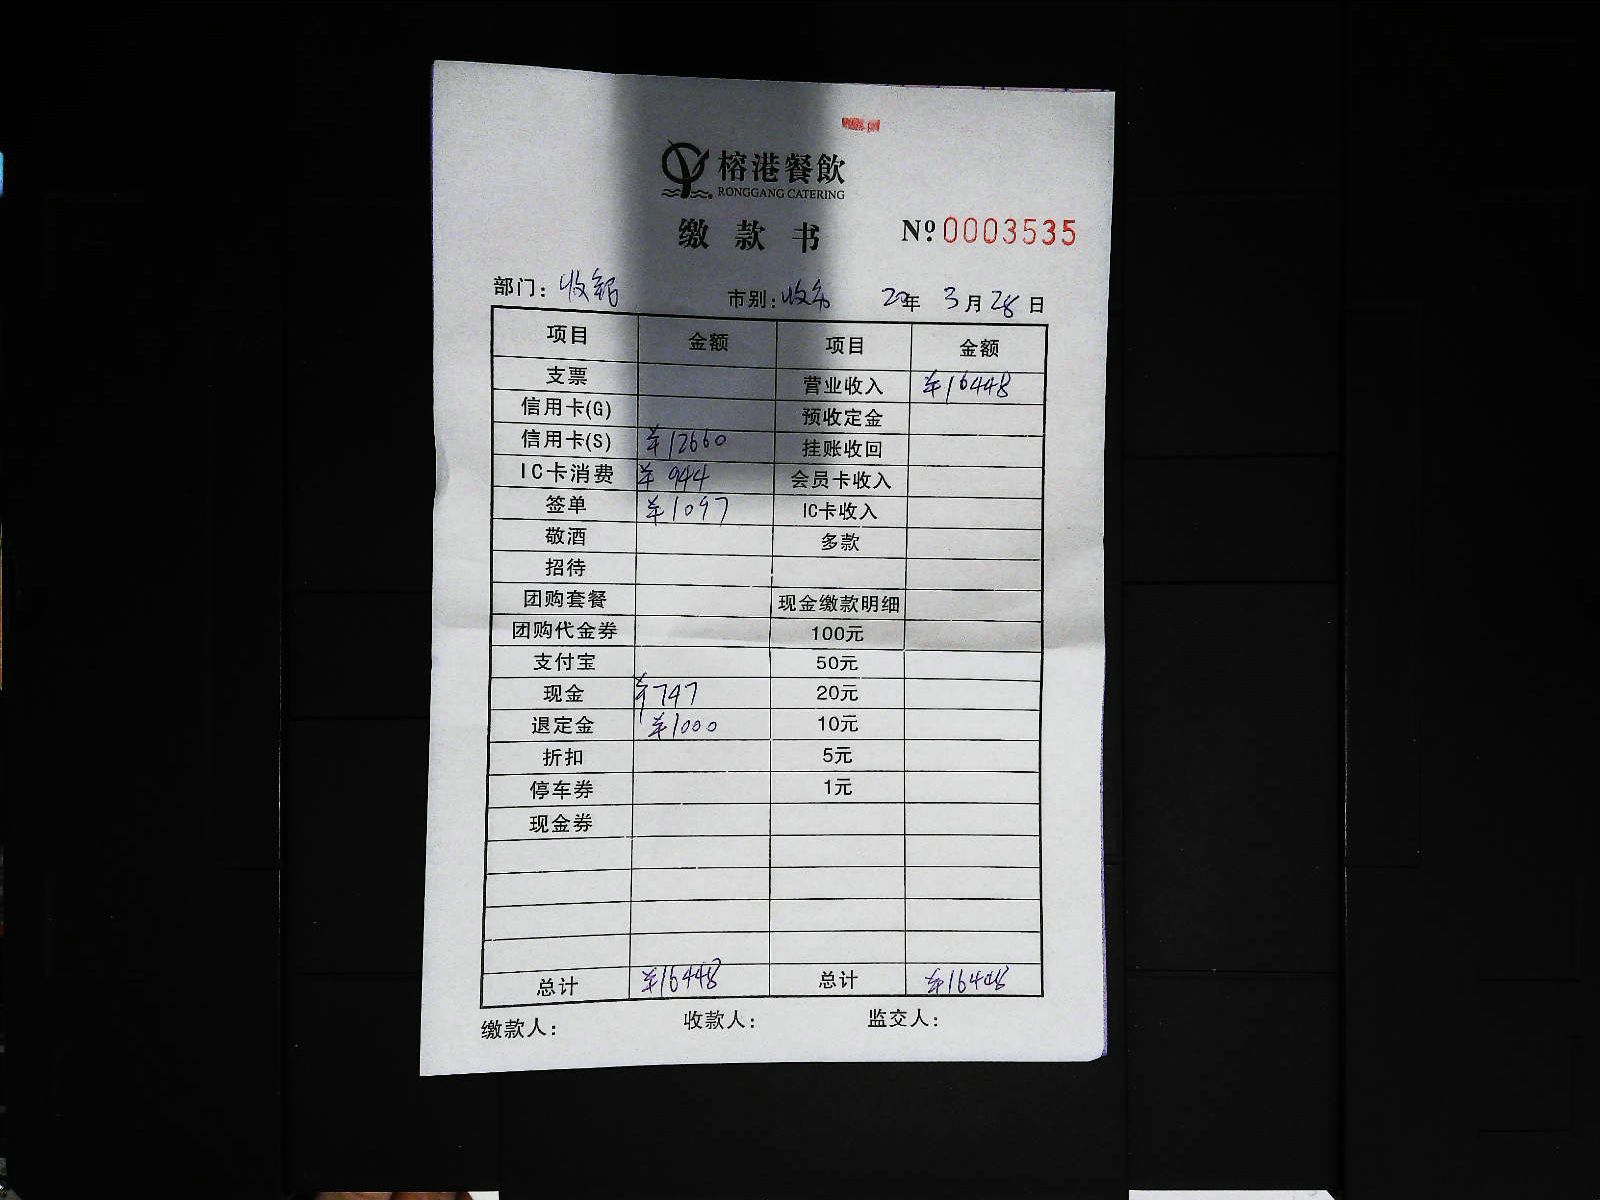 榕港餐飲
RONGGANG CATERING
缴款书 Nº 0003535
部门：收银 市别：收 20年 3月 28日
项目 金额 项目 金额
支票 营业收入 ¥16448
信用卡(G) 预收定金
信用卡(S) ¥12660 挂账收回
IC卡消费 ¥944 会员卡收入
签单 ¥1097 IC卡收入
敬酒 多款
招待
团购套餐 现金缴款明细
团购代金券 100元
支付宝 50元
现金 ¥747 20元
退定金 ¥1000 10元
折扣 5元
停车券 1元
现金券
总计 ¥16448 总计 ¥16448
缴款人： 收款人： 监交人：